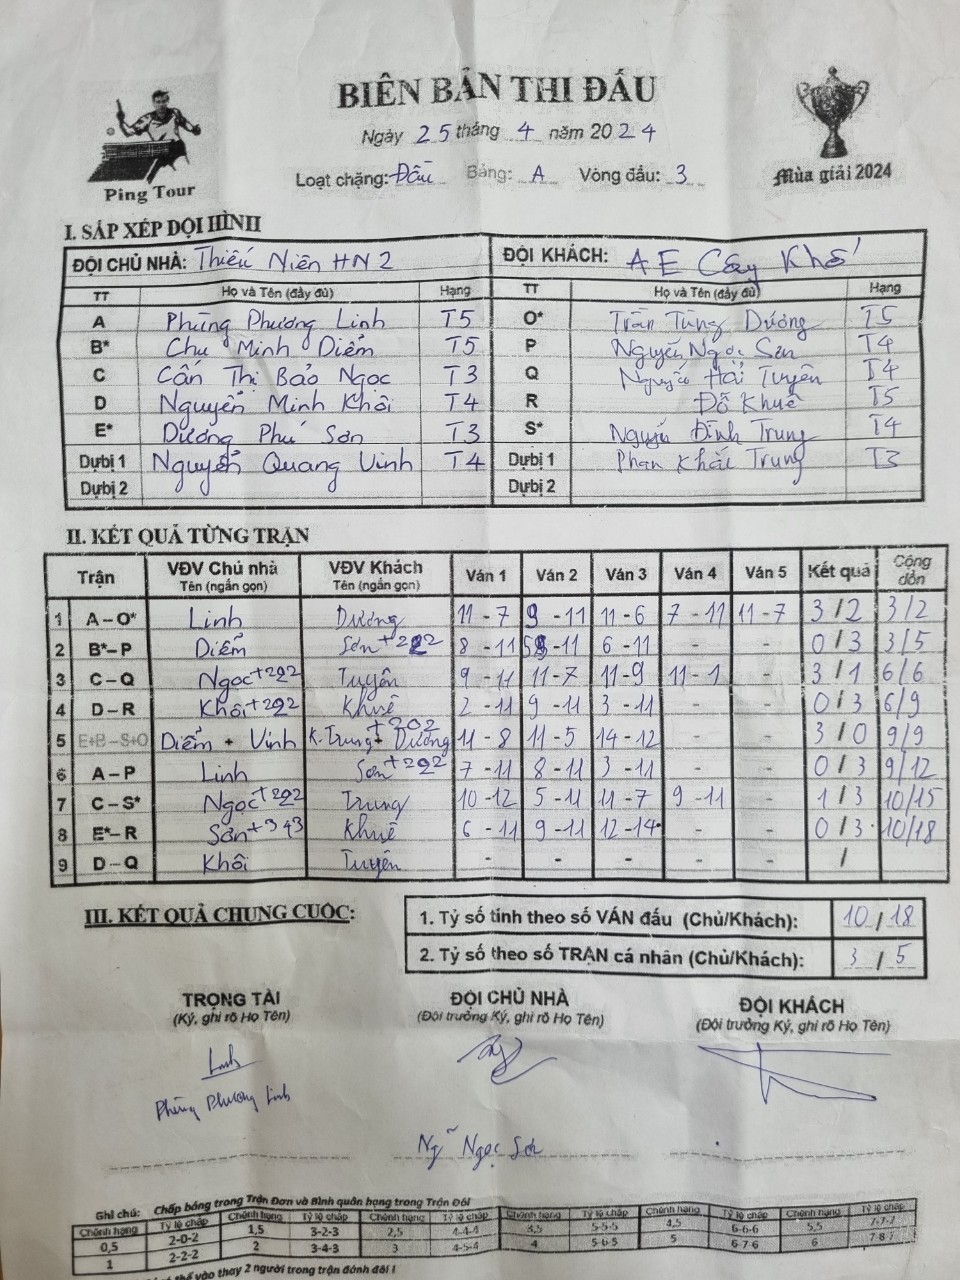 BIÊN BẢN THI ĐẤU
Ngày 25 tháng 4 năm 2024
Ping Tour
Loạt chặng: Đầu Bảng: A Vòng đấu: 3
Mùa giải 2024
I. SẮP XẾP ĐỘI HÌNH
ĐỘI CHỦ NHÀ: Thiếu Niên HN2 ĐỘI KHÁCH: AE Cây Khế
TT Họ và Tên (đầy đủ) Hạng TT Họ và Tên (đầy đủ) Hạng
A Phùng Phương Linh T5 O* Trần Tùng Dương T5
B* Chu Minh Diễm T5 P Nguyễn Ngọc Sơn T4
C Cấn Thị Bảo Ngọc T3 Q Nguyễn Hải Tuyên T4
D Nguyễn Minh Khôi T4 R Đỗ Khuê T5
E* Dương Phú Sơn T3 S* Nguyễn Đình Trung T4
Dự bị 1 Nguyễn Quang Vinh T4 Dự bị 1 Phan Khắc Trung T3
Dự bị 2 Dự bị 2
II. KẾT QUẢ TỪNG TRẬN
Trận VĐV Chủ nhà Tên (ngắn gọn) VĐV Khách Tên (ngắn gọn) Ván 1 Ván 2 Ván 3 Ván 4 Ván 5 Kết quả Cộng dồn
1 A – O* Linh Dương 11 - 7 9 - 11 11 - 6 7 - 11 11 - 7 3 / 2 3/2
2 B* – P Diễm Sơn +222 8 - 11 - 11 6 - 11 - - 0 / 3 3/5
3 C – Q Ngọc +222 Tuyên 9 - 11 11 - 7 11 - 9 11 - 1 - 3 / 1 6/6
4 D – R Khôi +222 Khuê 2 - 11 9 - 11 3 - 11 - - 0 / 3 6/9
5 E+B – S+O Diễm + Vinh K.Trung + Dương +202 11 - 8 11 - 5 14 - 12 - - 3 / 0 9/9
6 A – P Linh Sơn +222 7 - 11 8 - 11 3 - 11 - - 0 / 3 9/12
7 C – S* Ngọc +222 Trung 10 - 12 5 - 11 11 - 7 9 - 11 - 1 / 3 10/15
8 E* – R Sơn +343 Khuê 6 - 11 9 - 11 12 - 14 - - 0 / 3 10/18
9 D – Q Khôi Tuyên - - - - - /
III. KẾT QUẢ CHUNG CUỘC:
1. Tỷ số tính theo số VÁN đấu (Chủ/Khách): 10 / 18
2. Tỷ số theo số TRẬN cá nhân (Chủ/Khách): 3 / 5
TRỌNG TÀI ĐỘI CHỦ NHÀ ĐỘI KHÁCH
(Ký, ghi rõ Họ Tên) (Đội trưởng Ký, ghi rõ Họ Tên) (Đội trưởng Ký, ghi rõ Họ Tên)
Linh
Phùng Phương Linh
Ng~ Ngọc Sơn
Ghi chú: Chấp bóng trong Trận Đơn và Bình quân hạng trong Trận Đôi
Chênh hạng Tỷ lệ chấp Chênh hạng Tỷ lệ chấp Chênh hạng Tỷ lệ chấp Chênh hạng Tỷ lệ chấp Chênh hạng Tỷ lệ chấp Chênh hạng Tỷ lệ chấp
0,5 2-0-2 1,5 3-2-3 2,5 4-4-4 3,5 5-5-5 4,5 6-6-6 5,5 7-7-7
1 2-2-2 2 3-4-3 3 4-5-4 4 5-6-5 5 6-7-6 6 7-8-7
thể vào thay 2 người trong trận đánh đôi !